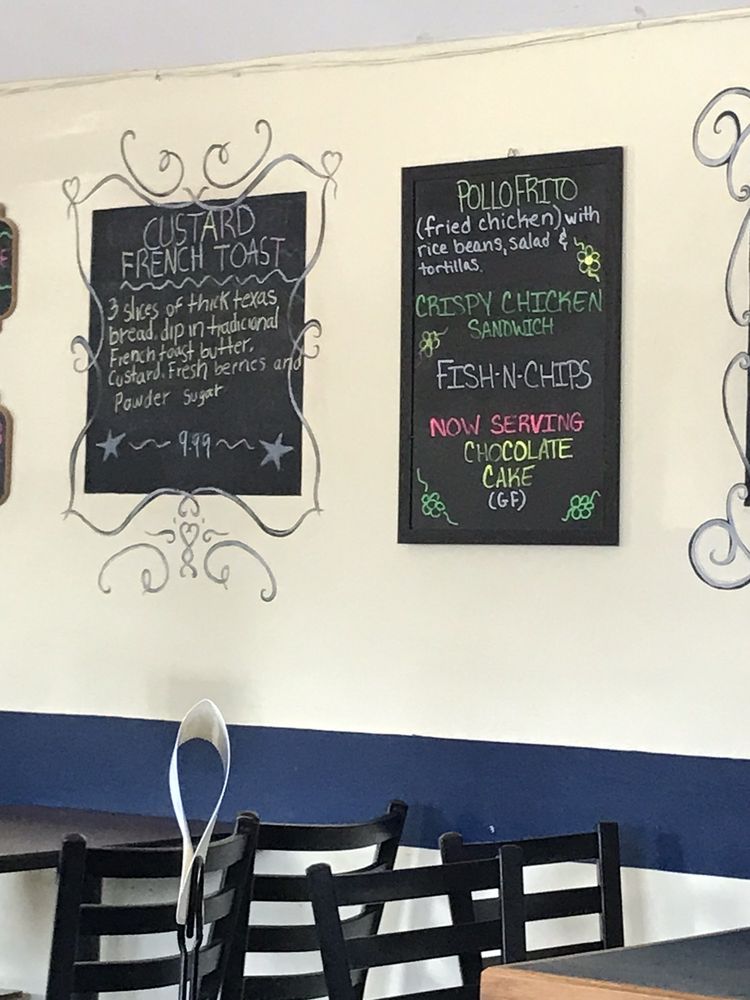 CUSTARD
FRENCH TOAST
3 slices of thick texas
bread, dip in tradicional
French toast butter,
Custard, Fresh berries and
Powder Sugar
9.99
POLLO FRITO
(fried chicken) with
rice beans, salad &
tortillas.
CRISPY CHICKEN
SANDWICH
FISH-N-CHIPS
NOW SERVING
CHOCOLATE
CAKE
(GF)